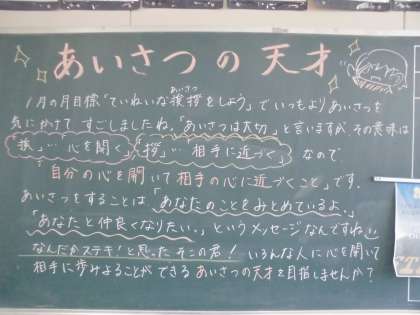 あいさつの天才
1月の月目標「ていねいな挨拶をしよう」でいつもよりあいさつを
あいさつ
気にかけて すごしましたね。「あいさつは大切」と言いますが、その意味は
挨…心を開く 拶…相手に近づく なので
「自分の心を開いて相手の心に近づくこと」です。
あいさつをすることは「あなたのことをみとめているよ。」
「あなたと仲良くなりたい。」というメッセージなんですね。
なんだかステキ!と思ったそこの君! いろんな人に心を開いて
相手に歩みよることができる あいさつの天才を目指しませんか?